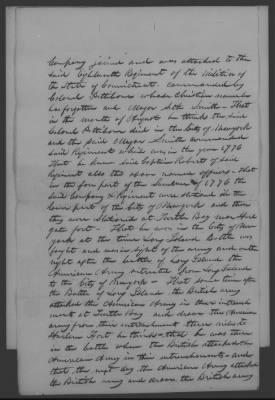 Company joined and was attached to the
said Eighteenth Regiment of the Militia of
the State of Connecticut commanded by
Colonel Pettibone whose Christian name he
has forgotten and Major Seth Smith - That
in the month of August he thinks the said
Colonel Pettibone died in the City of New York
and the said Major Smith commanded
said Regiment while in the year 1776
That he knew said Captain Roberts of said
Regiment also the above named officers - That
in the fore part of the Summer of 1776 the
said Company & Regiment were stationed in the
lower part of the City of New York and then
they were stationed at Turtle Bay near Hare
gate fort - That he was in the City of New
York at the time Long Island Battle was
fought and main right of the army and on the
night after the battle of Long Island the
American Army retreated from Long Island
to the City of New York - That some time after
the Battle of Long Island the British army
attacked the American Army in their intrench
ment at Turtle Bay and drove the American
army from their intrenchment there towards
Harlem Fort he thinks - that he was there
in the battle when the British attacked the
American Army in their intrenchments - and
that the next day the American Army attacked
the British army and drove the British army